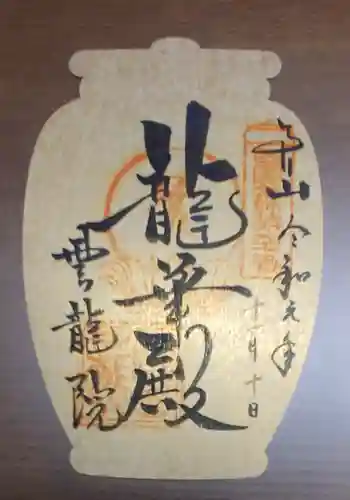 泉山
令和元年
十一月十日
龍華殿
雲龍院